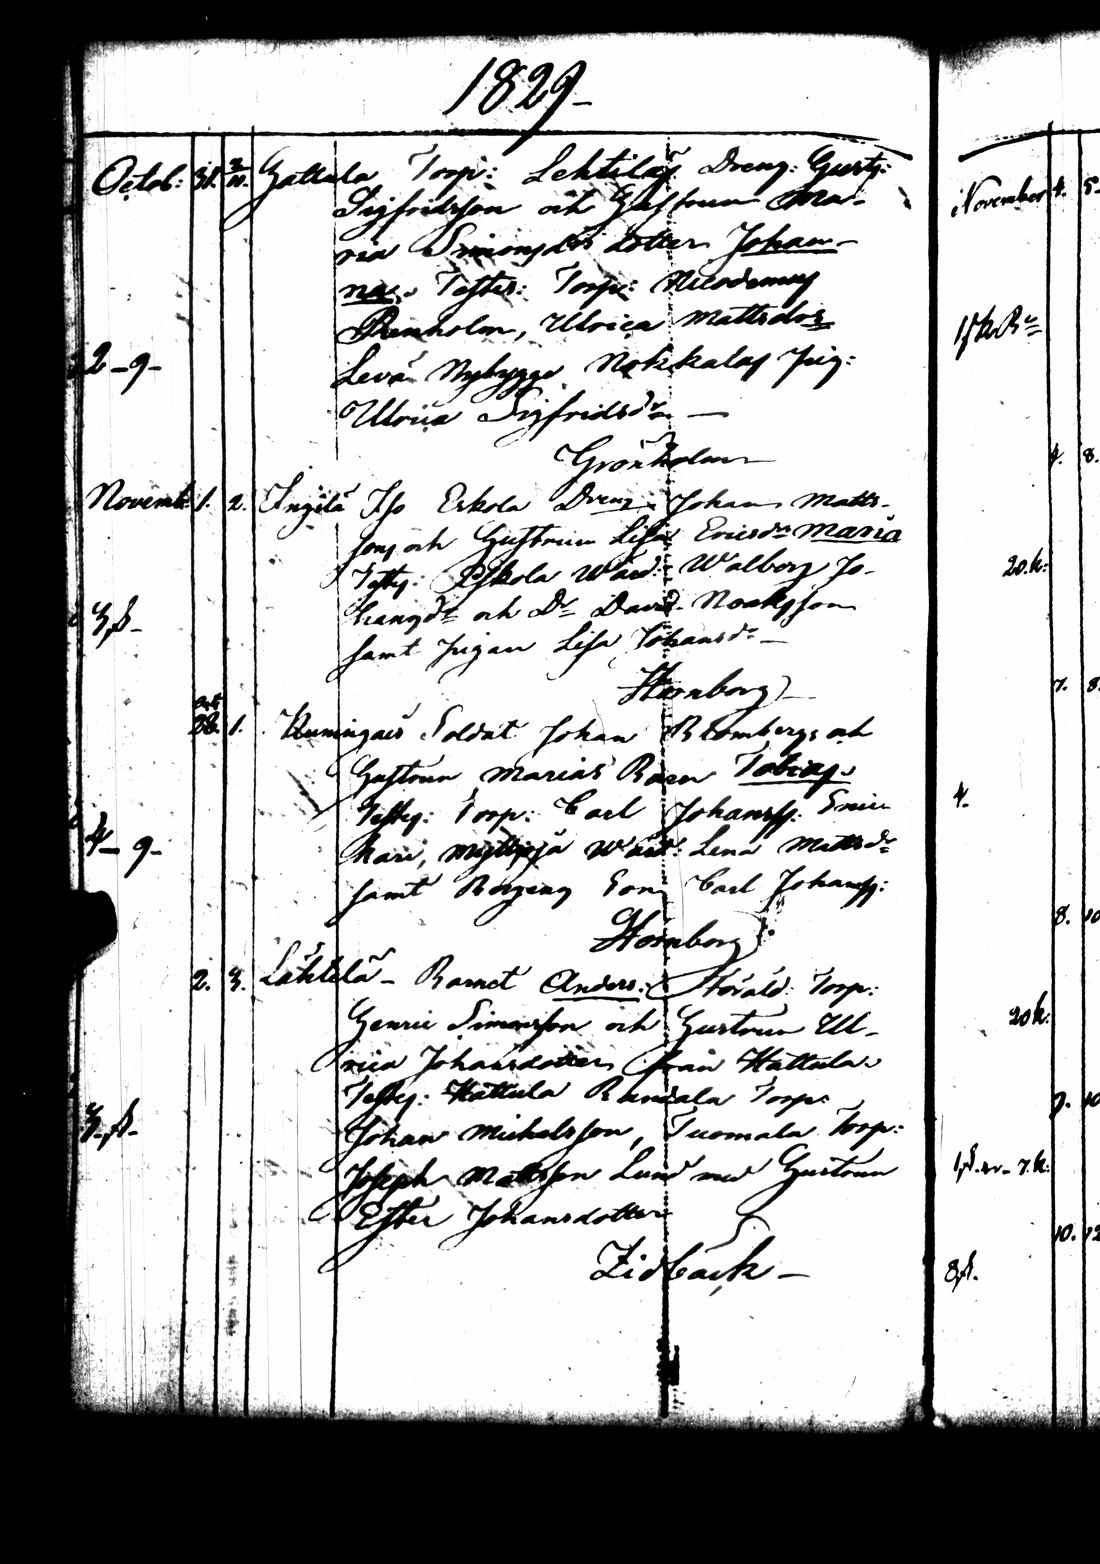 1829
Octob: 31. 2/11. Hattula Torp: Lehtiläs Dreng: Gust:
Sigfridsson och Hustrun Ma-
ria Simonsdrs dotter Johan-
na. Testes: Torp: Nicodemus
Renholm, Ulrica Mattsdor
2 - 9 -
Levä Nybygge Nokkalas Pig:
Ulrica Sigfridsdr
Grönholm
Novemb: 1. 2. Ingilä Iso Eskola Dreng Johan Matts-
son och Hustrun Lisa Ericsdr Maria
Testes: Eskola Wärd: Walborg Jo-
hansdr och Dr David Noaksson
3 ß -
samt Pigan Lisa Johansdr
Hornborg
Oct 28. 1. Kumingais Soldat Johan Blombergs och
Hustrun Marias Barn Tobias.
Testes: Torp: Carl Johanss:
4 - 9 -
Wärd: Lena Mattsdr
samt Son Carl Johanss:
Hornborg
2. 3. Lähtelä - Barnet Anders: Föräld: Torp:
Henric Simonsson och Hustrun Ul-
rica Johansdotter från Hattula.
Testes: Hattula Randala Torp:
3 ß -
Johan Michelsson, Tuomala Torp:
Joseph Mattsson Lund med Hustrun
Ester Johansdotter
Zidbäck
November 4. 5.
4. 8.
20. k:
7. 8.
4.
8. 10
20 k:
9. 10
7. k:
10. 12
8 ß.